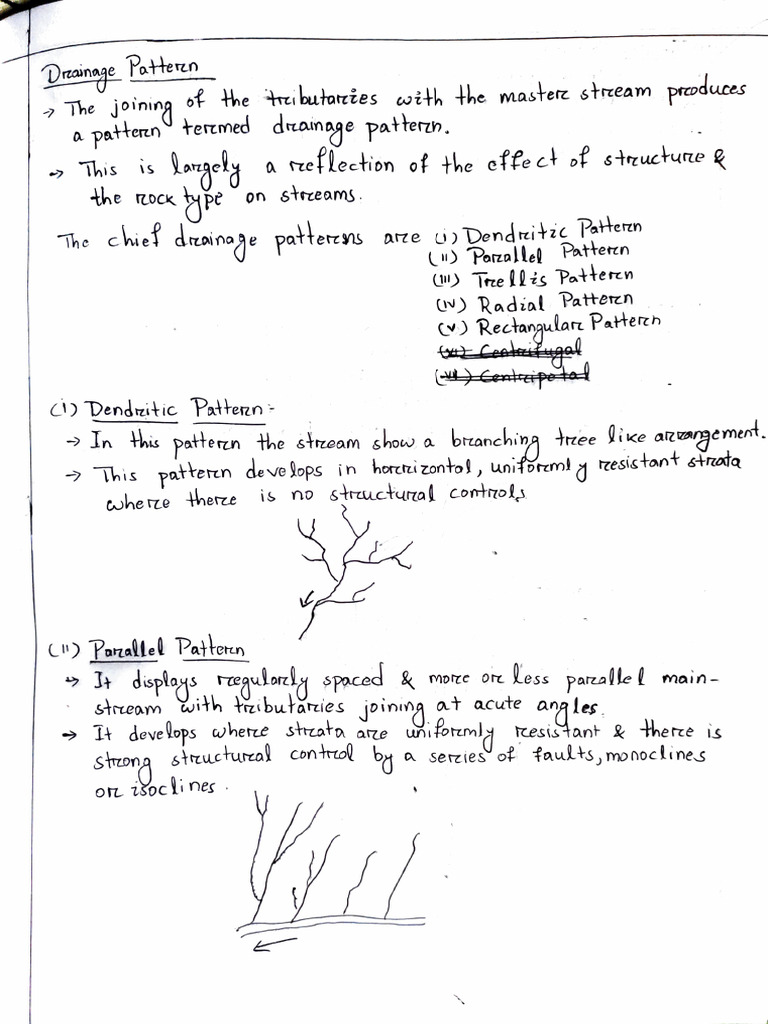 Drainage Pattern
→ The joining of the tributaries with the master stream produces
a pattern termed drainage pattern.
→ This is largely a reflection of the effect of structure &
the rock type on streams.
The chief drainage patterns are (i) Dendritic Pattern
(ii) Parallel Pattern
(iii) Trellis Pattern
(iv) Radial Pattern
(v) Rectangular Pattern
(vi) Centrifugal
(vii) Centripetal
(i) Dendritic Pattern:-
→ In this pattern the stream show a branching tree like arrangement.
→ This pattern develops in horrizontal, uniformly resistant strata
where there is no structural controls
(ii) Parallel Pattern
→ It displays regularly spaced & more or less parallel main-
stream with tributaries joining at acute angles.
→ It develops where strata are uniformly resistant & there is
strong structural control by a series of faults, monoclines
or isoclines.